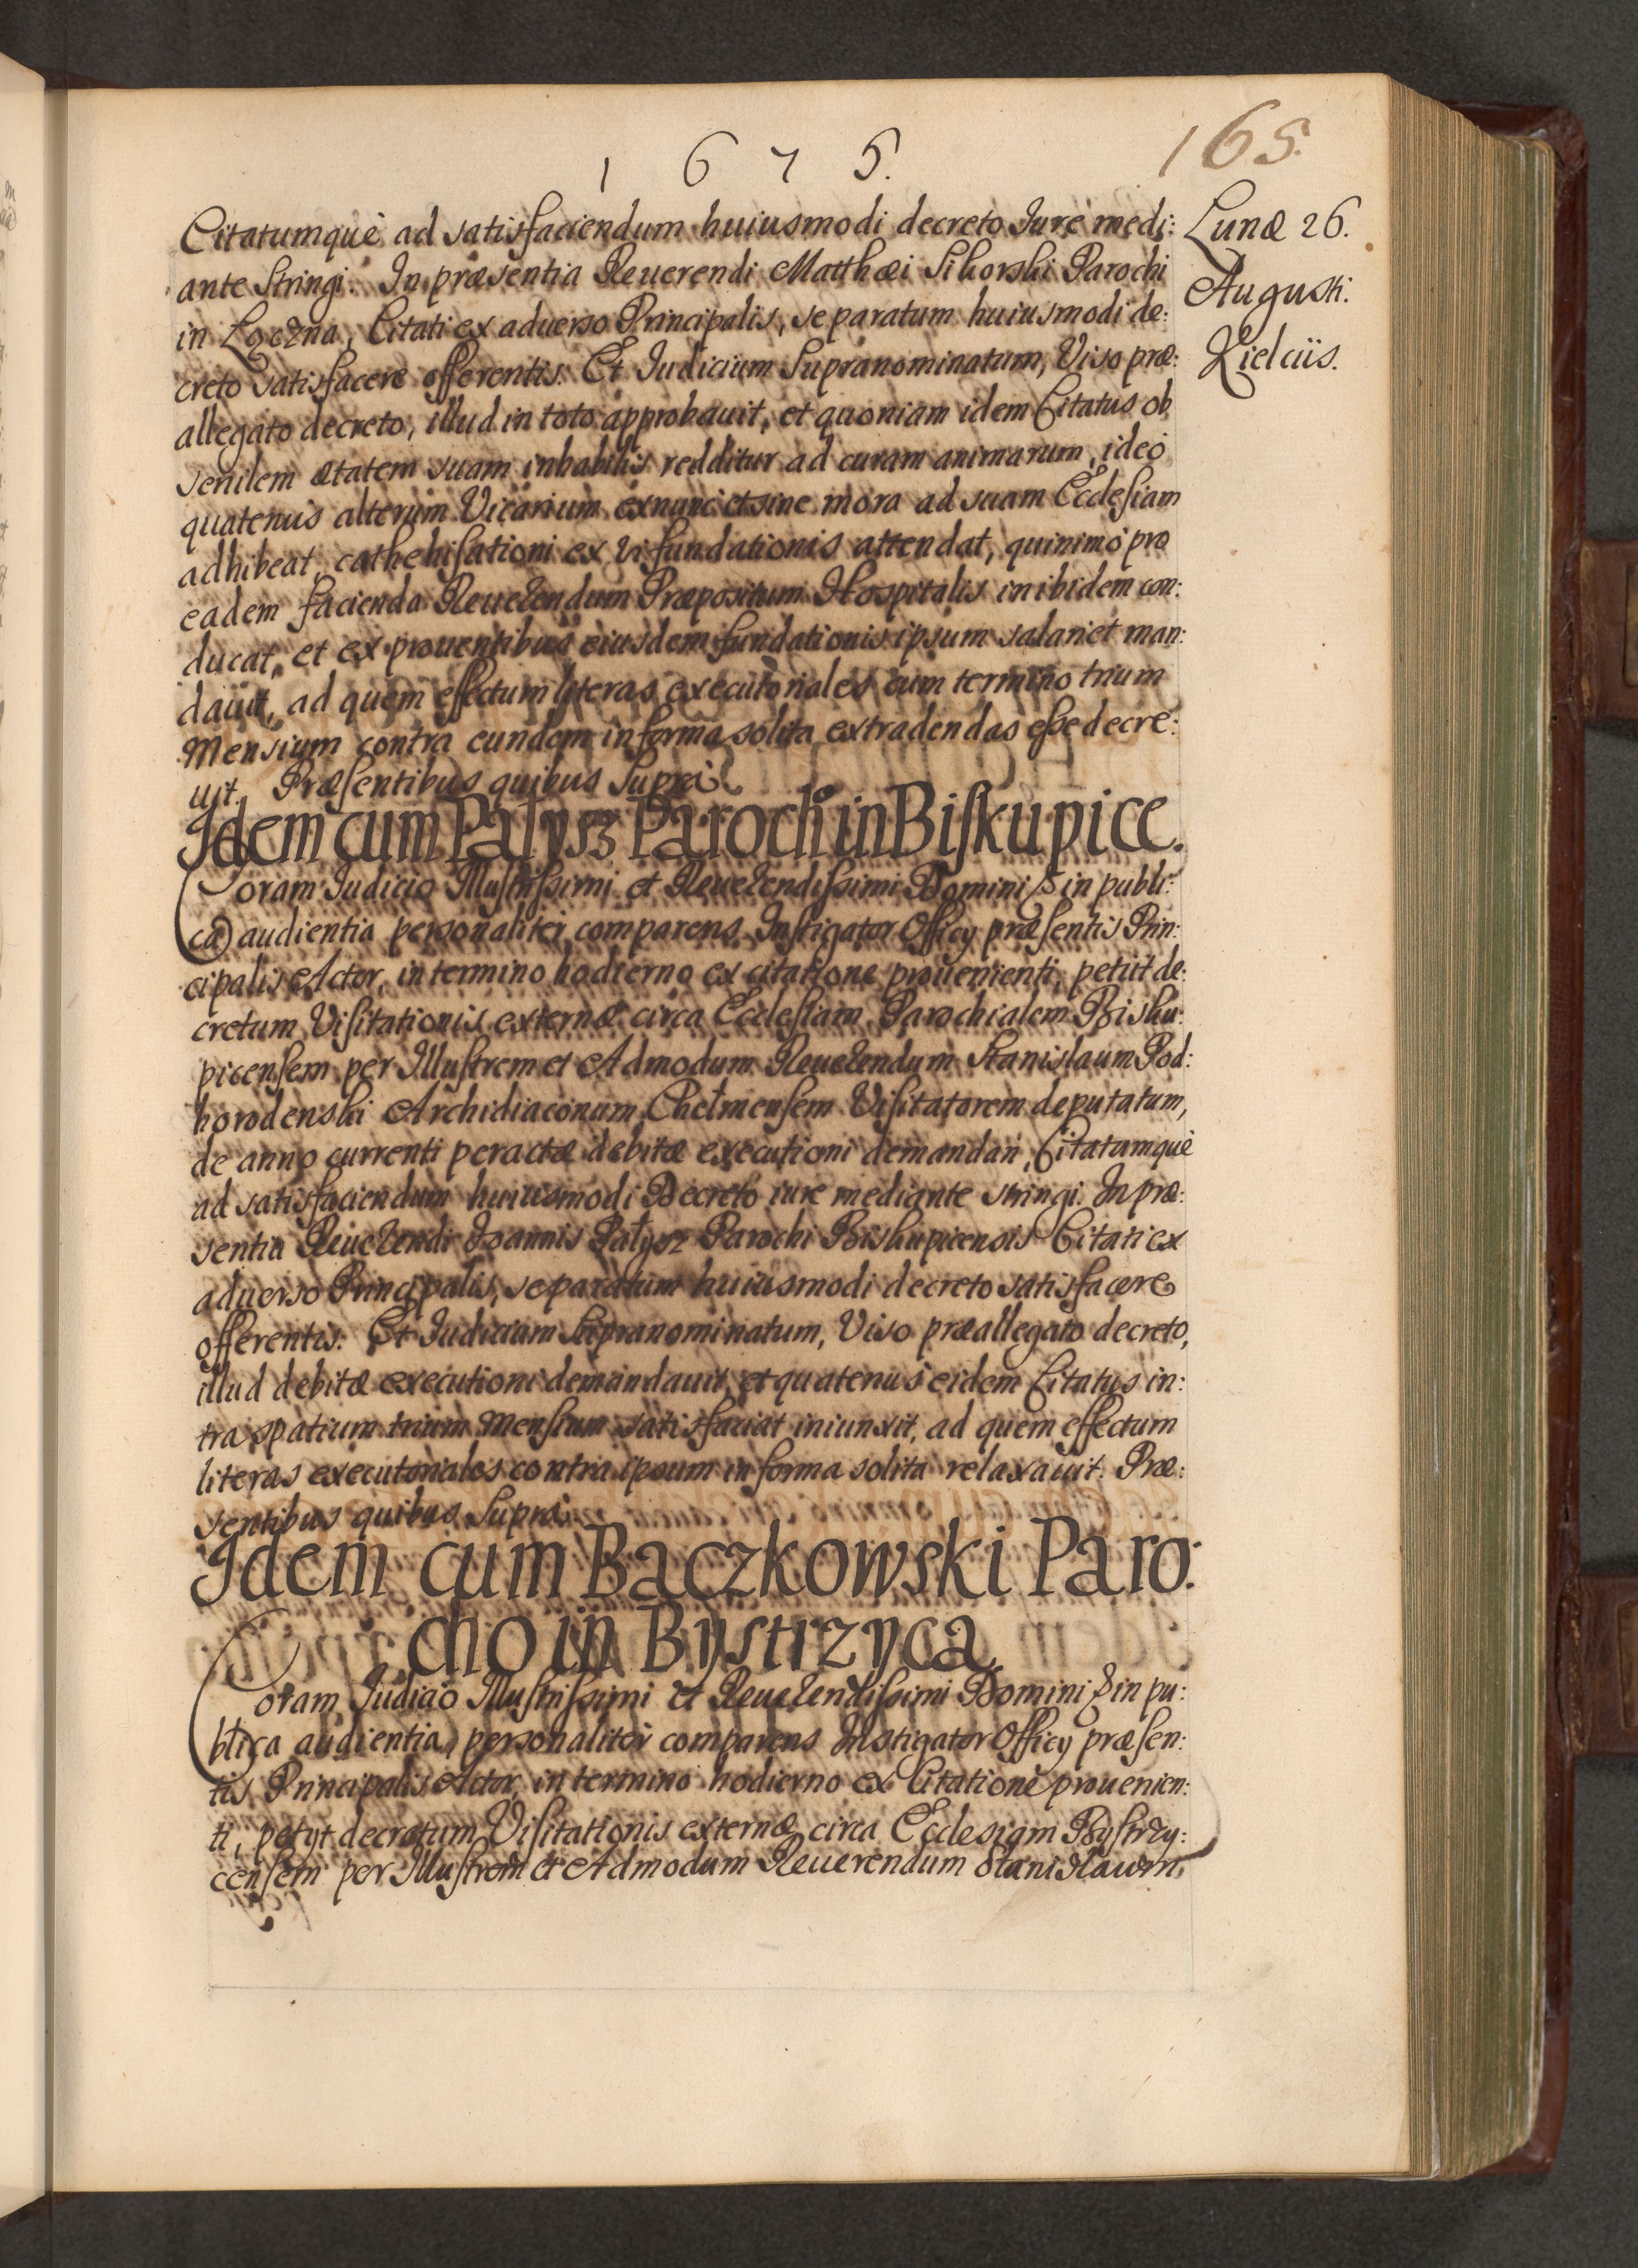 1 6 7 5.
165.
Lunæ 26.
Augusti.
Kielciis.
Citatumquè ad satisfaciendum huiusmodi decreto Iure medi:
ante stringi. In præsentia Reuerendi Matthæi Sikorski Parochi
in Łęczna, Citati ex aduerso Principalis, se paratum huiusmodi de:
creto satisfacere offerentis. Et Iudicium Supranominatum, Viso præ:
allegato decreto, illud in toto approbauit, et quoniam idem Citatus ob
senilem ætatem suam inhabilis redditur ad curam animarum, ideò
quatenus alterum Vicarium exnunc et sine mora ad suam Ecclesiam
adhibeat, cathehisationi ex vi fundationis attendat, quinimò pro
eadem facienda Reuerendum Præpositum Hospitalis inibidem con:
ducat, et ex prouentibus eiusdem fundationis ipsum salariet man:
dauit, ad quem effectum literas executoriales cum termino trium
Mensium contra eundem in forma solita extradendas esse decre:
uit. Præsentibus quibus Suprà.
Idem cum Pałysz Paroch in Biskupice.
Coram Iudicio Illustrissimi et Reuerendissimi Domini & in publi:
ca audientia personaliter comparens Instigator Officy præsentis Prin:
cipalis Actor, in termino hodierno ex citatione prouenienti, petiit de:
cretum Visitationis externæ circa Ecclesiam Parochialem Bisku:
picensem per Illustrem et Admodum Reuerendum Stanislaum Pod:
horodenski Archidiaconum Chełmensem Visitatorem deputatum,
de anno currenti peractæ debitæ executioni demandari, Citatumquè
ad satisfaciendum huiusmodi Decreto iure mediante stringi. In præ:
sentia Reuerendi Ioannis Pałysz Parochi Biskupicensis Citati ex
aduerso Principalis, se paratum huiusmodi decreto satisfacere
offerentis. Et Iudicium Supranominatum, Viso præallegato decreto,
illud debitæ executioni demandauit, et quatenus eidem Citatus in:
tra spatium trium Mensium satisfaciat iniunxit, ad quem effectum
literas executoriales contra ipsum in forma solita relaxauit. Præ:
sentibus quibus Suprà.
Idem cum Bączkowski Paro:
cho in Bystrzyca
Coram Iudicio Illustrissimi et Reuerendissimi Domini & in pu:
blica audientia, personaliter comparens Instigator Officy præsen:
tis Principalis Actor, in termino hodierno ex Citatione prouenien:
ti, petyt decretum Visitationis externæ circa Ecclesiam Bystrzy:
censem per Illustrem et Admodum Reuerendum Stanislaum